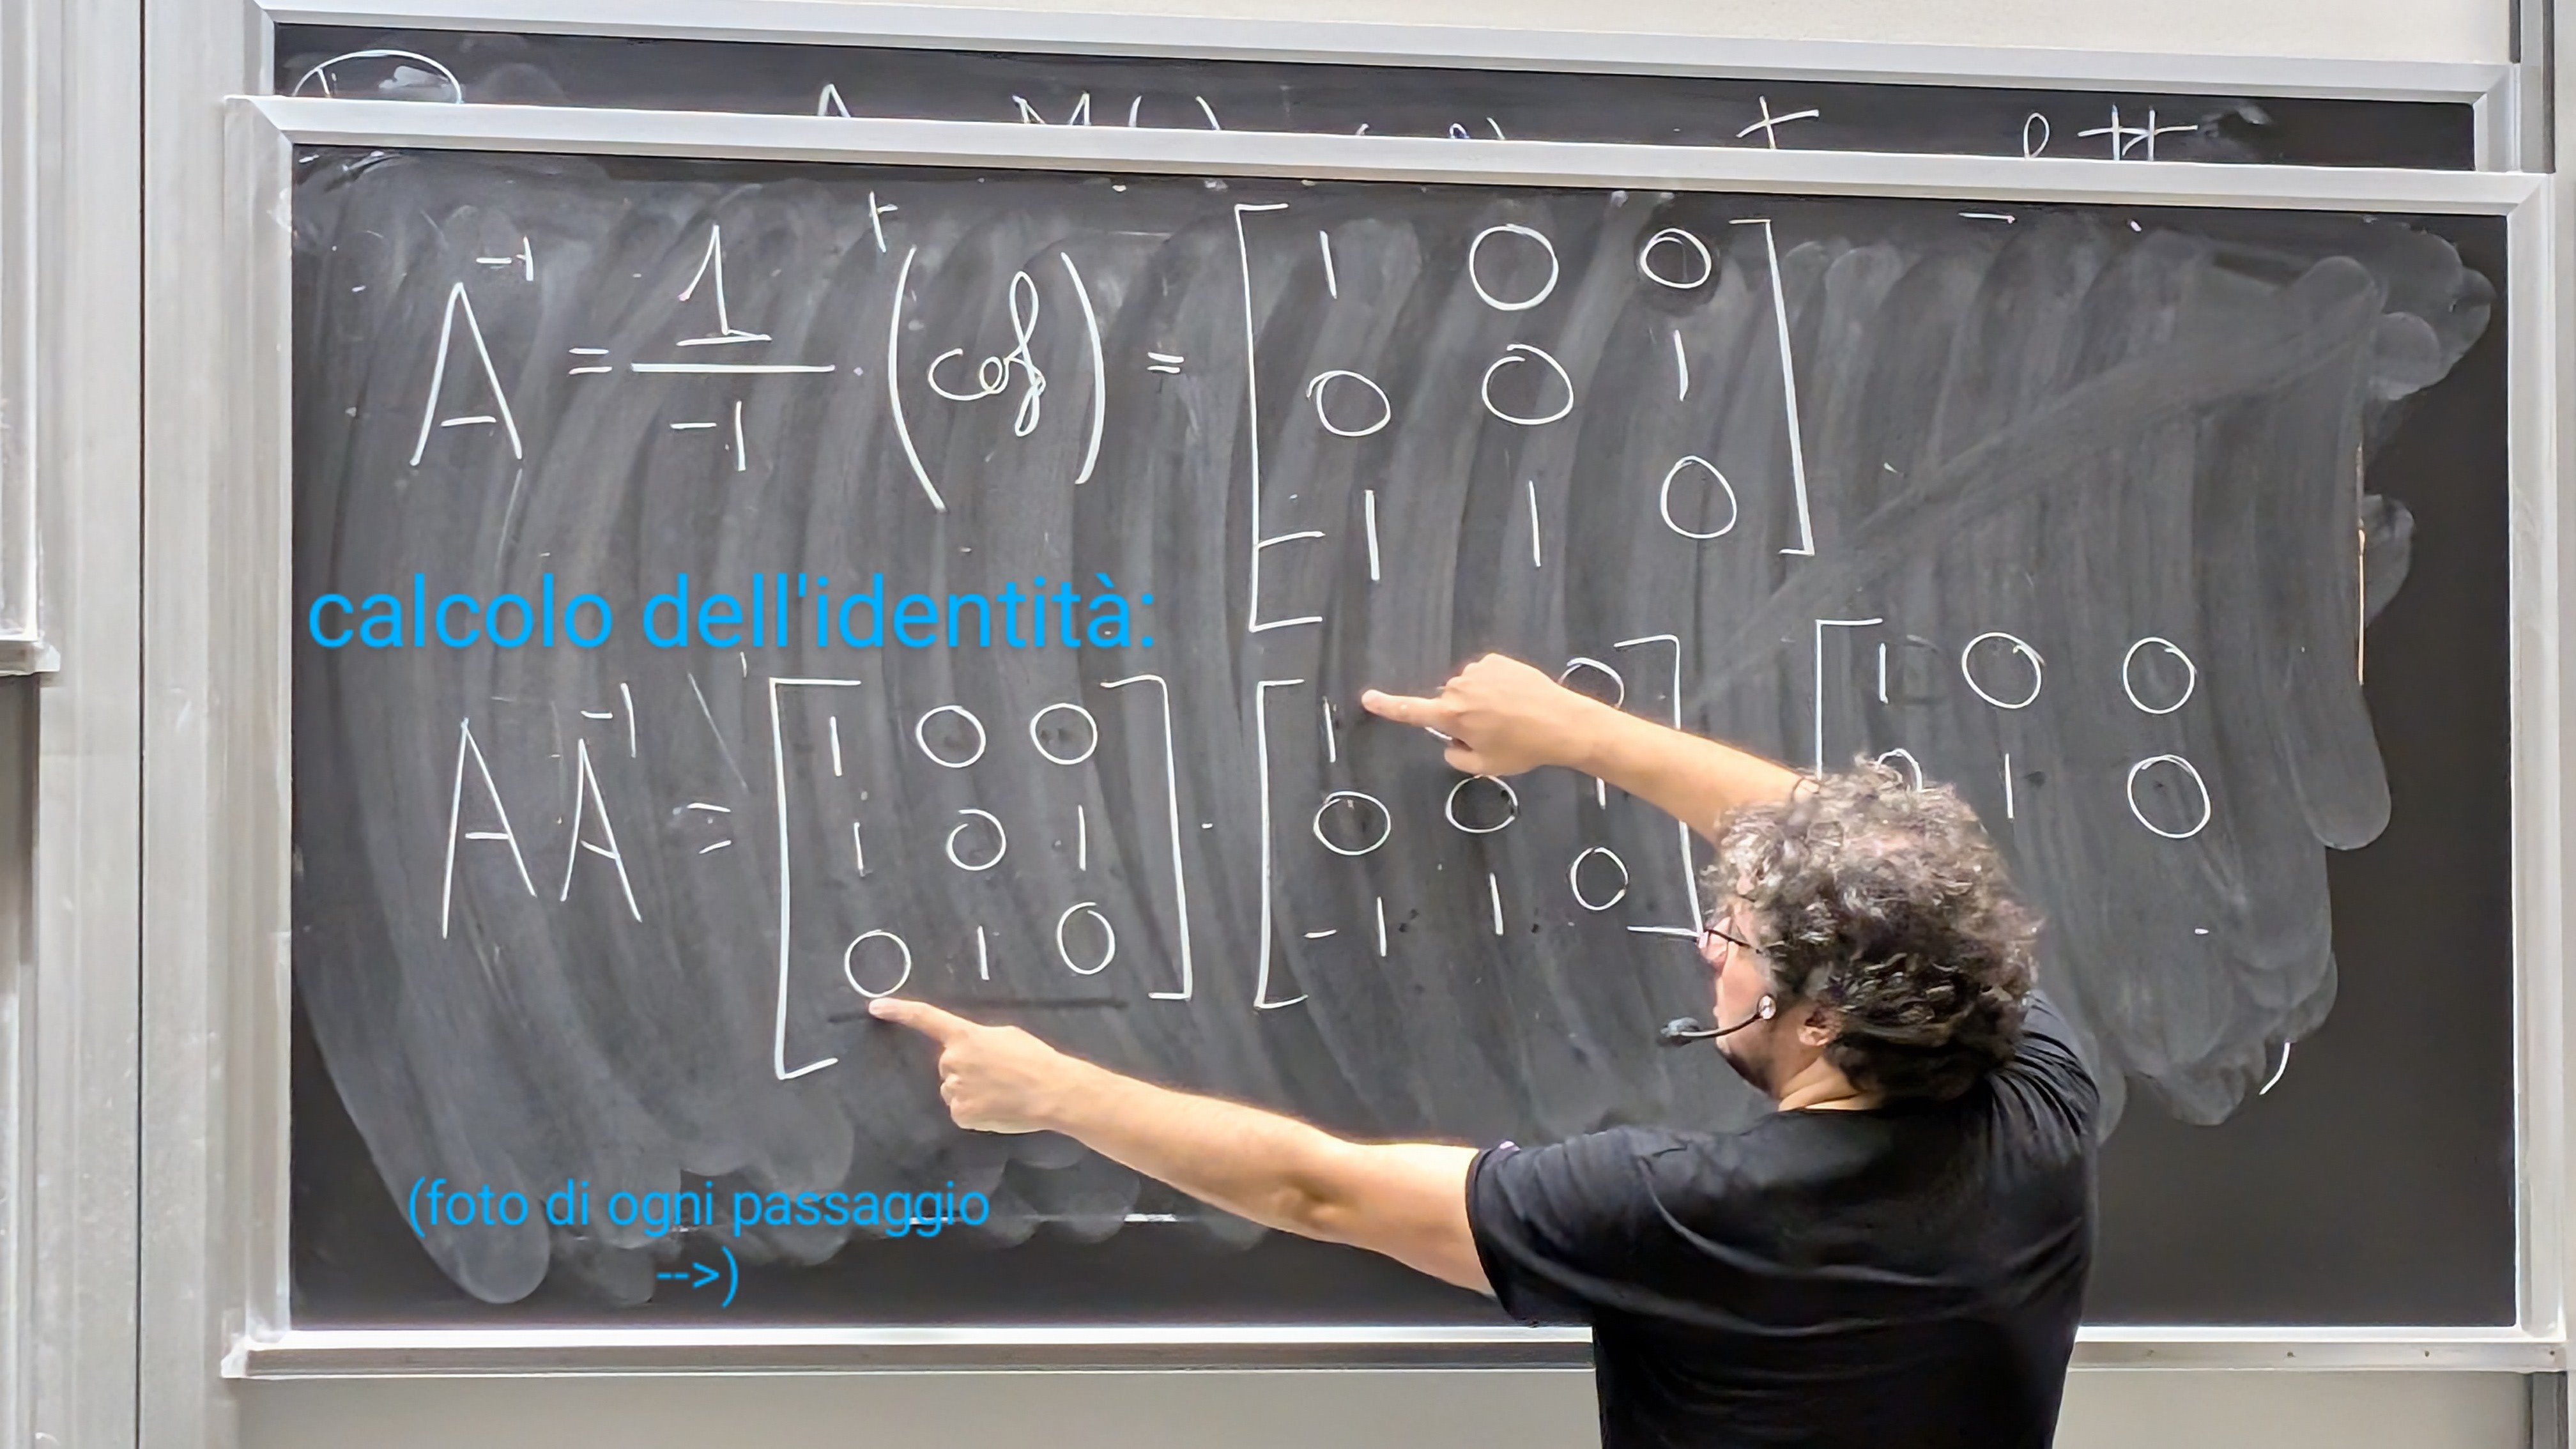 A⁻¹ = 1/-1 · ᵗ(cof) = [1 0 0
0 0 1
-1 1 0]
calcolo dell'identità:
A A⁻¹ = [1 0 0 [1 0 [1 0 0
1 0 1 · 0 0 1 0 1 0
0 1 0] -1 1 0]
(foto di ogni passaggio
-->)